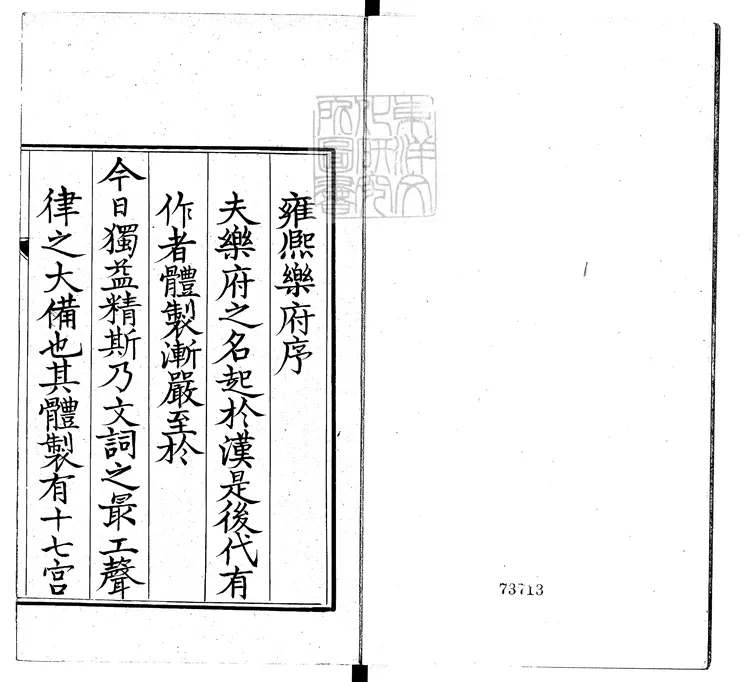 雍熙樂府序
夫樂府之名起於漢是後代有
作者體製漸嚴至於
今日獨益精斯乃文詞之最工聲
律之大備也其體製有十七宮
東洋文
化研究
所圖書
73713